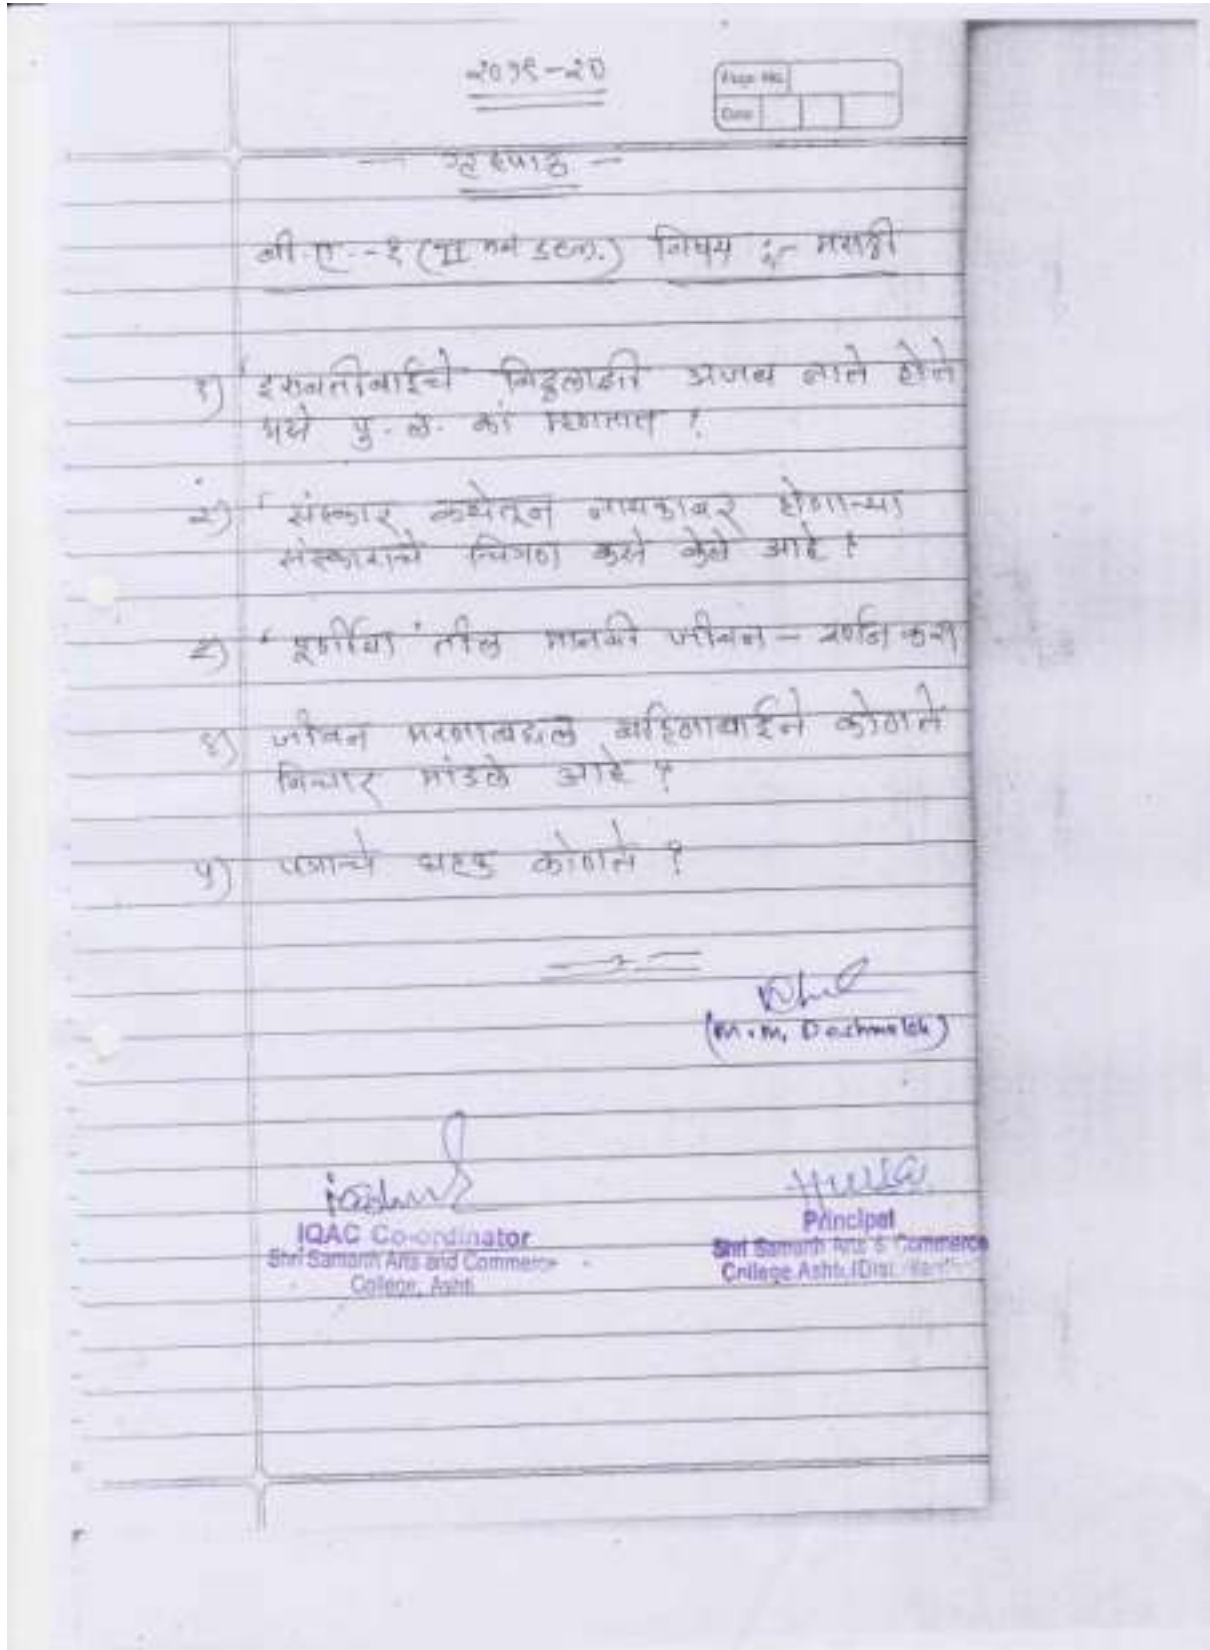 २०१९-२०
Page No.
Date
— गृहपाठ —
बी.ए.-१ (II सेमी.) विषय :- मराठी
१) इरावतीबाईचे विठ्ठलाशी अजब नाते होते
असे पु. ल. कां म्हणतात ?
२) ' संस्कार कथेतून नायकावर होणाऱ्या
संस्काराचे चित्रण कसे केले आहे ?
३) ' तील मानवी जीवन – वर्णन करा
४) जीवन मरणाबद्दल बहिणाबाईने कोणते
विचार मांडले आहे ?
५) पत्राचे घटक कोणते ?
(M. M. Deshmukh)
IQAC Co-ordinator
Shri Samarth Arts and Commerce
College, Ashti
Principal
Shri Samarth Arts & Commerce
College Ashti, (Dist.